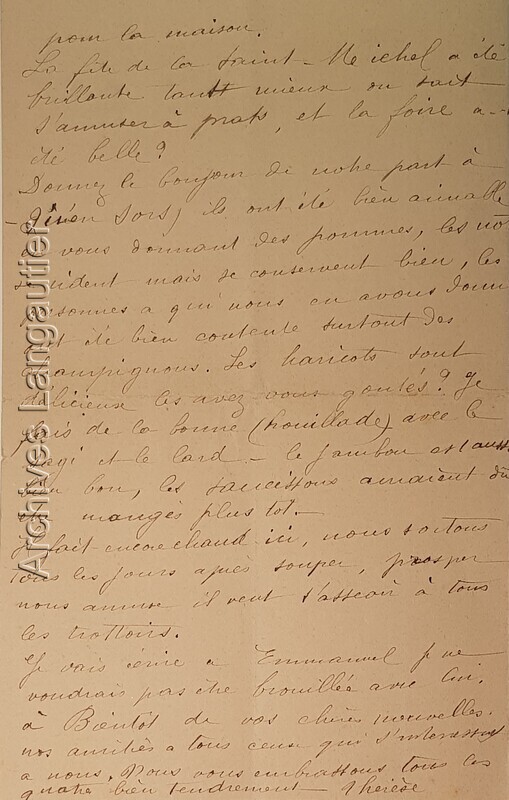 pour la maison.
La fête de la Saint-Meichel a été
brillante tant mieux on sait
s'amuser à prats, et la foire a-
été belle?
Donnez le bonjour de notre part à
ils ont été bien aimable
vous donnant des pommes, les nô
rident mais se conservent bien, les
personnes a qui nous en avons donn
été bien contente surtout des
champignons. Les haricots sont
délicieux les avez vous goutés? Je
fais de la bonne (houillade) avec le
et le lard - le jambon est aussi
bien bon, les saucissons auraient dû
être mangés plus tôt.
Il fait encore chaud ici, nous sortons
tous les jours après souper, prosper
nous amuse il veut s'asseoir à tous
les trottoirs.
Je vais écrire a Emmanuel je ne
voudrais pas être brouillée avec lui.
à Bientôt de vos chères nouvelles.
nos amitiés a tous ceux qui s'intéressent
a nous. Nous vous embrassons tous les
quatre bien tendrement Thérèse
Archives Langautier